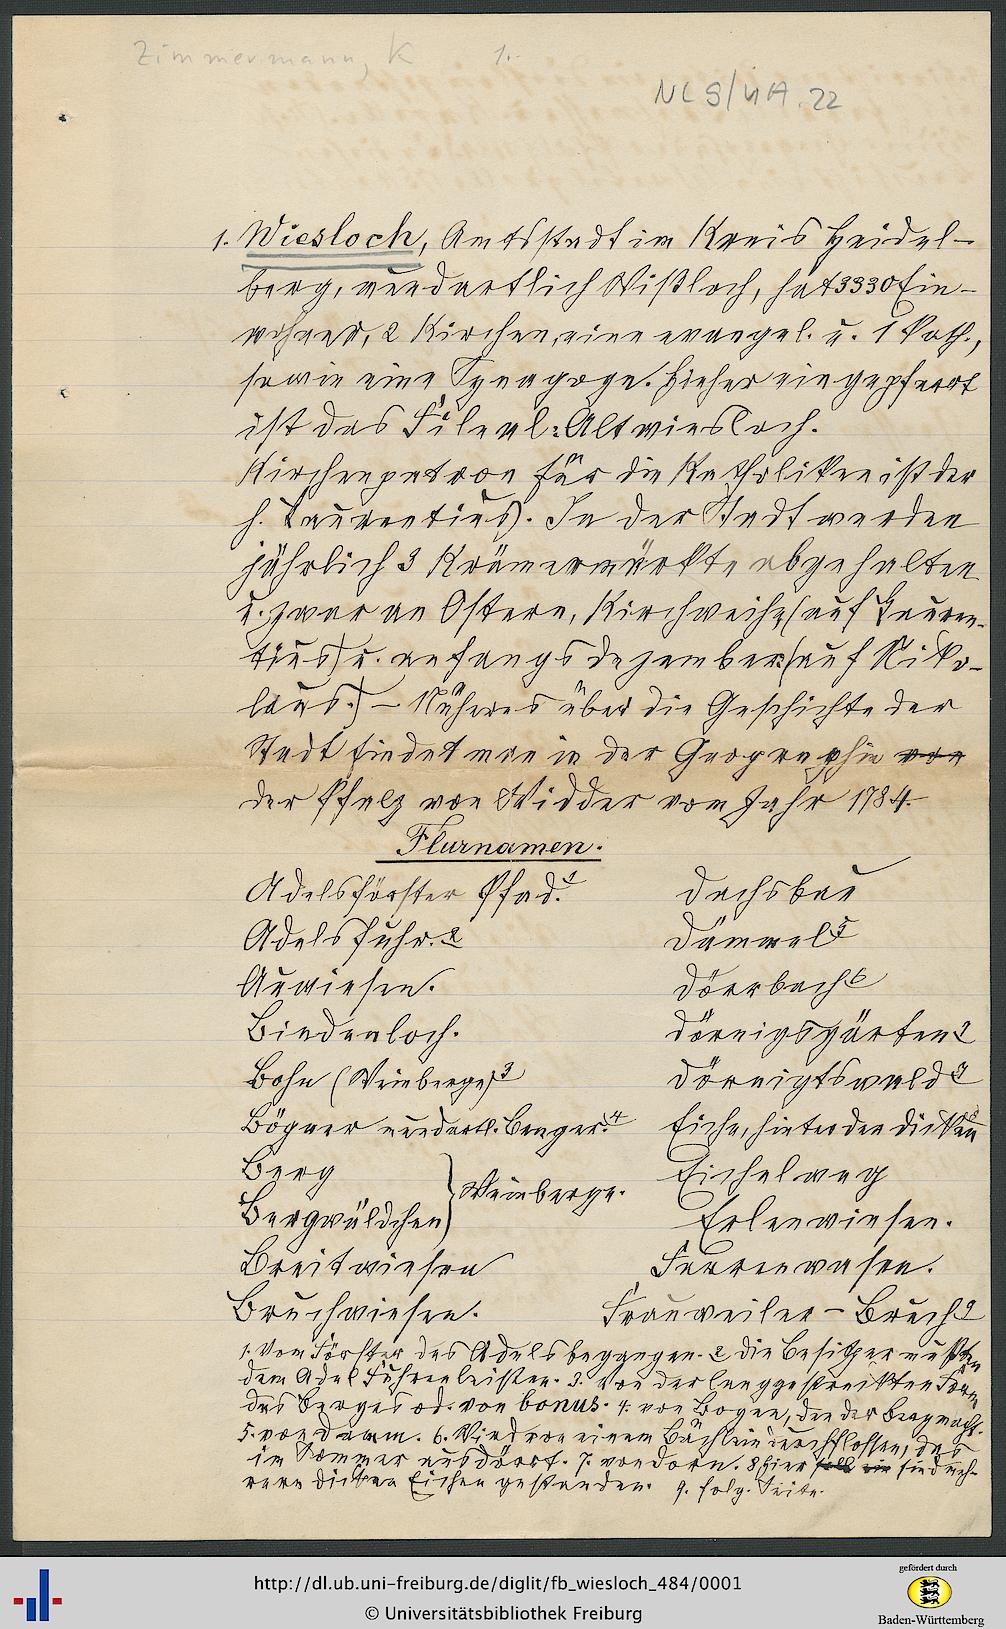 Zimmermann, K 1.
NL 9/UA. 22
1. Wiesloch, Amtsstadt im Kreis Heidel-
berg, mundartlich Wißloch, hat 3330 Ein-
wohner, 2 Kirchen, eine evangel. u. 1 kath.,
sowie eine Synagoge. Hieher eingepfarrt
ist das Filial: Altwiesloch.
Kirchenpatron für die Katholiken ist der
h. Laurentius). In der Stadt werden
jährlich 3 Krämermärkte abgehalten
u. zwar an Ostern, Kirchweihe, (auf Lauren-
tius) u. anfangs Dezember (auf Niko-
laus.) – Näheres über die Geschichte der
Stadt findet man in der Geographie von
der Pfalz von Widder vom Jahr 1784.
Flurnamen.
Adelsförster Pfad.1 Dachsbau
Adelsfuhr.2 Dämmel5
Auwiesen. Dörrbach6
Bindenloch. Dörnigsgärten7
Bohn (Weinberge)3 Dörnigtswald7
Bögner mundartl. Benger.4 Eiche, hinter den dicken8
Berg Eichelweg
} Weinberge.
Bergwäldchen Erlenwiesen.
Breitwiesen Farrenwasen.
Bruchwiesen. Frauweiler-Bruch9
1. Vom Förster des Adels begangen. 2 die Besitzer mußten
dem Adel Fuhren leisten. 3. von der langgestreckten Form
des Berges od. von bonus. 4. von Bogen, den der Berg macht.
5. von Damm. 6. Wird von einem Bächlein durchflossen, das
im Sommer ausdörrt. 7. von Dorn. 8 hier soll ein sind meh-
rere dicken Eichen gestanden. 9. folg. Seite.
http://dl.ub.uni-freiburg.de/diglit/fb_wiesloch_484/0001
© Universitätsbibliothek Freiburg
gefördert durch
Baden-Württemberg